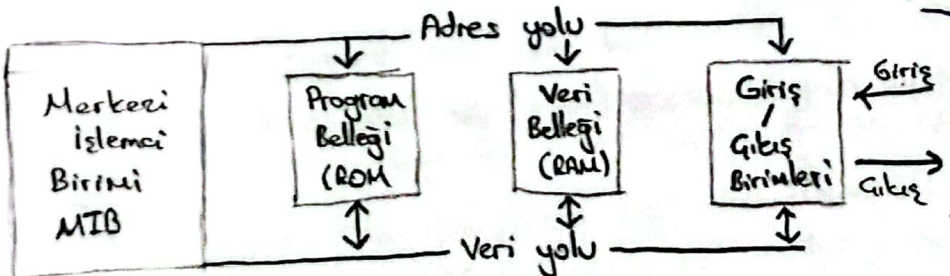 Adres yolu
Merkezi
işlemci
Birimi
MIB
Program
Belleği
(ROM
Veri
Belleği
(RAM)
Giriş
/
Çıkış
Birimleri
Giriş
Çıkış
Veri yolu